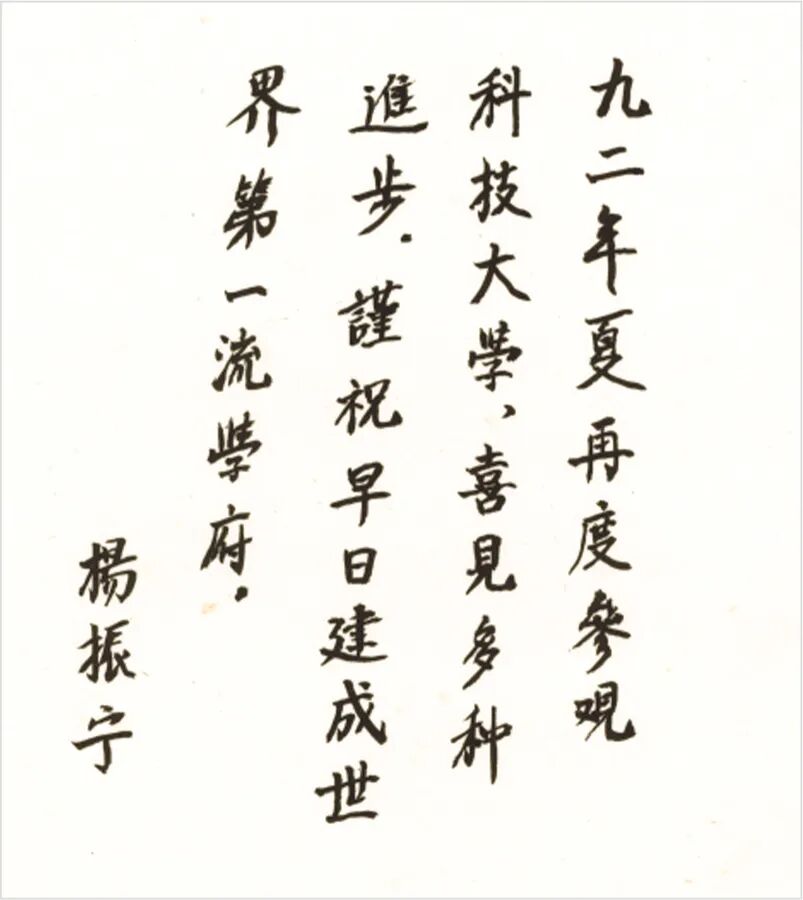 九二年夏再度參观
科技大學、喜見多种
進步.謹祝早日建成世
界第一流學府.
楊振宁